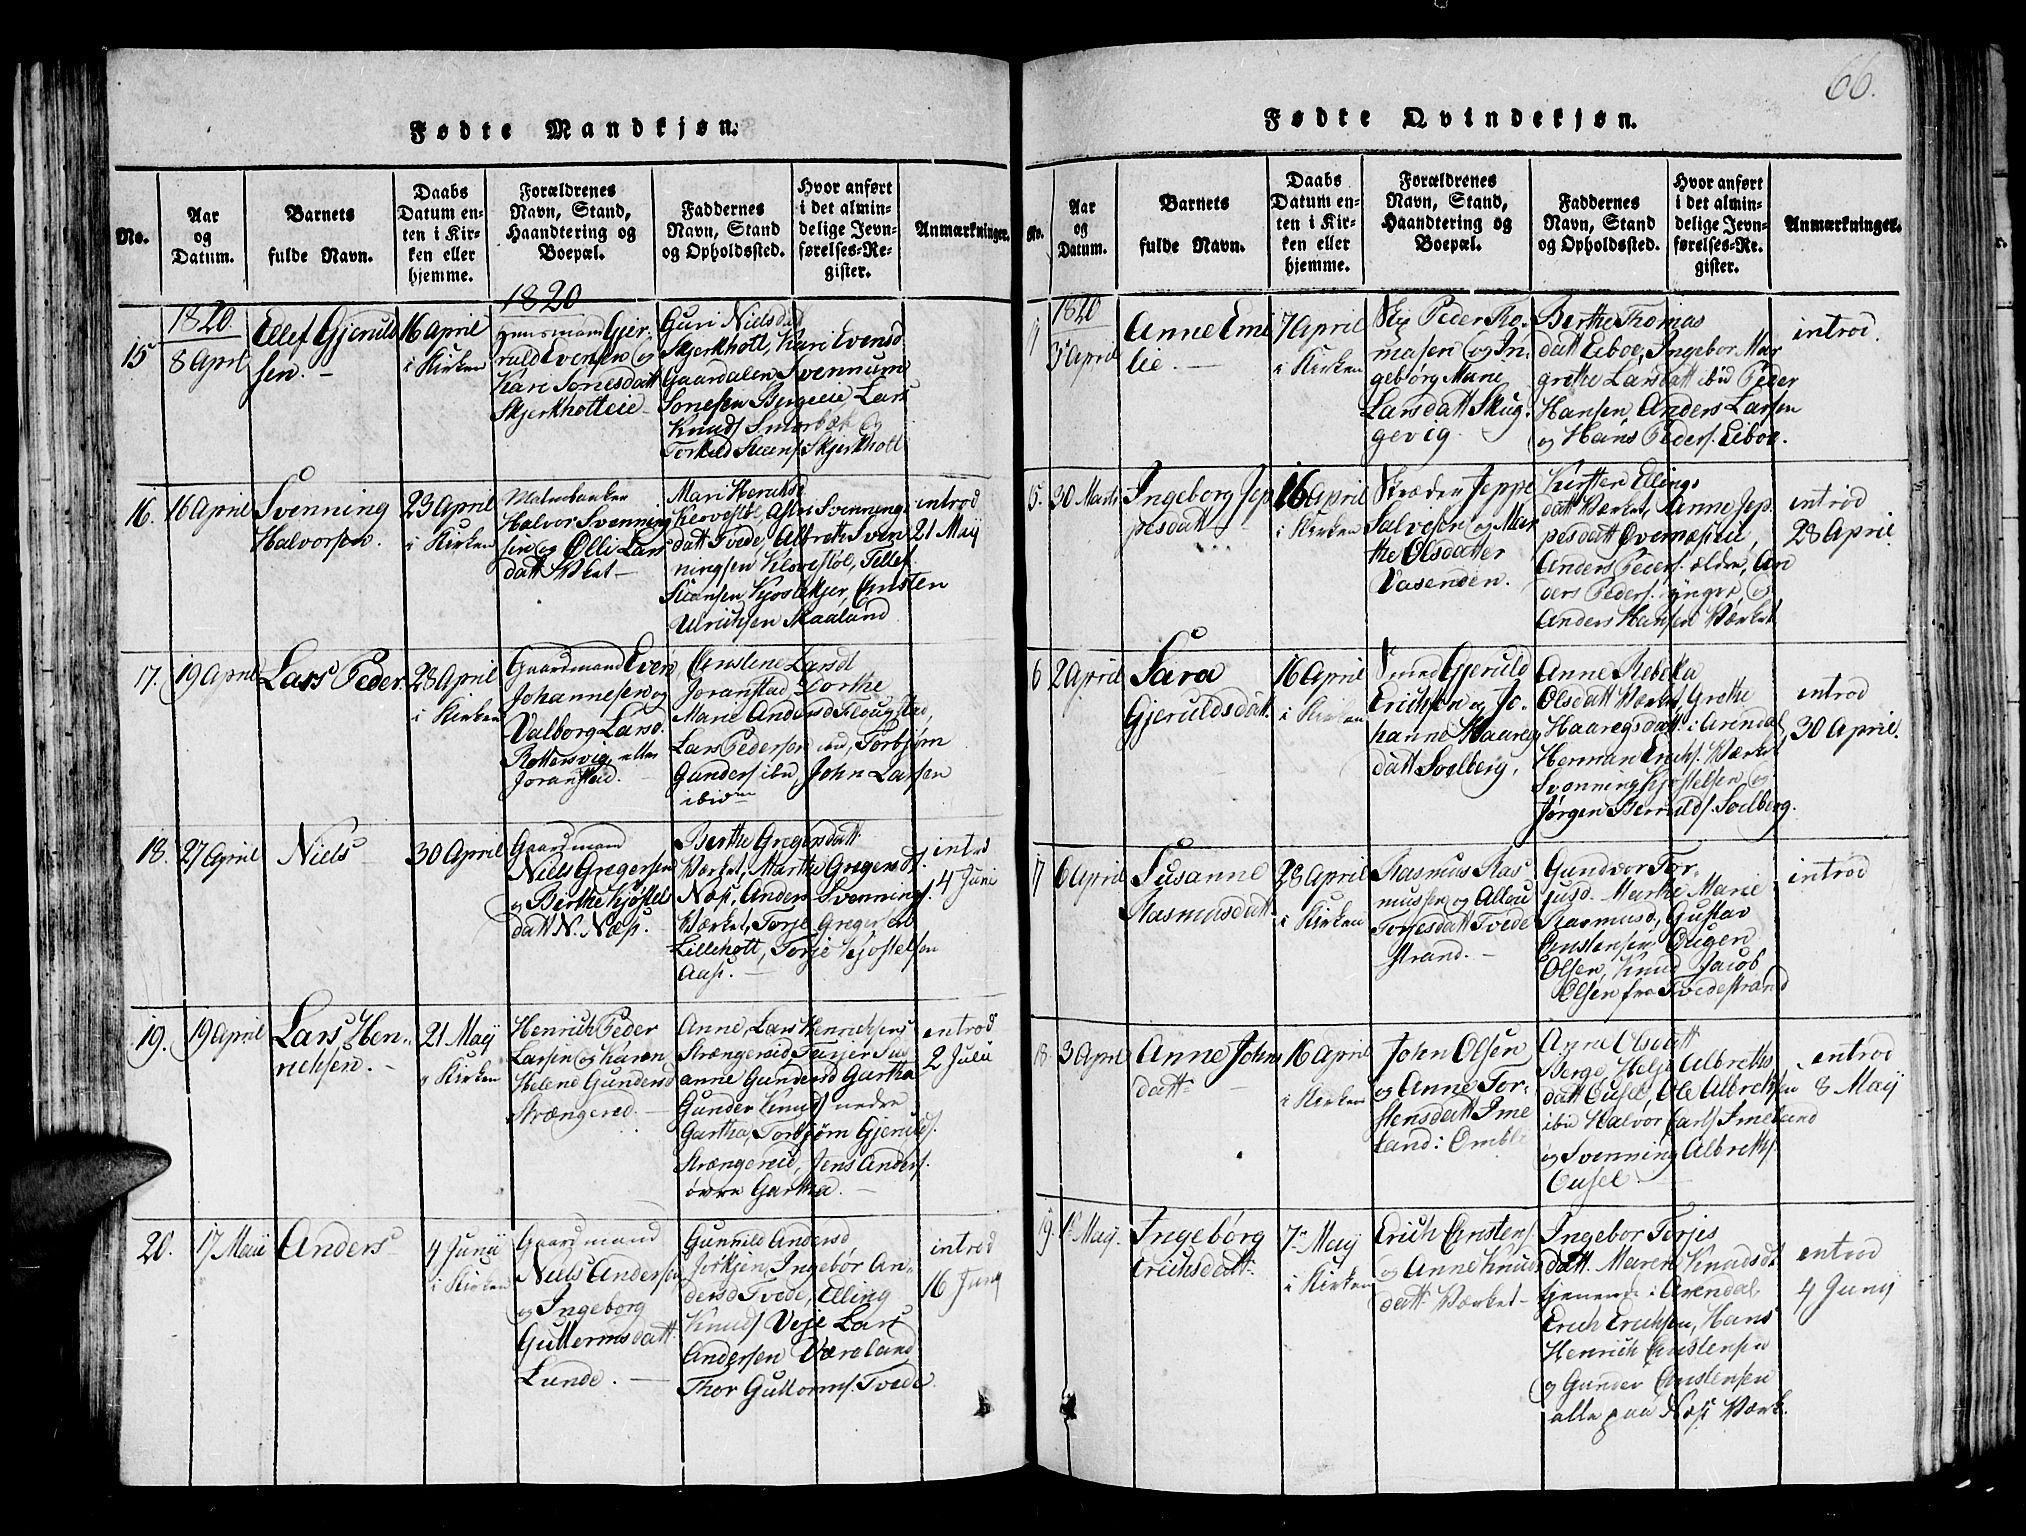 66.
Fødte Mandkjøn.
No.
Aar
og
Datum.
Barnets
fulde Navn.
Daabs
Datum en-
ten i Kir-
ken eller
hjemme.
Forældrenes
Navn, Stand,
Haandtering og
Boepæl.
Faddernes
Navn, Stand
og Opholdssted.
Hvor anført
i det almin-
delige Jevn-
førelses-Re-
gister.
Anmærkninger.
1820
15
8 Aprl
Ellef Gjeruld
sen. -
16 April
i Kirken
1820
Huusmand Gjer-
ruld Evensen og
Kari Sonesdatt
Skjerkholteie
Guri Nielsdat
Skjerkholt, Kari Evensd
Gaardalen Svennum
Sonesen Bergeie Lars
Knuds Smørbæk og
Torkild Svens Skjerkholt
16.
16 April
Svenning
Halvorsen.
23 April
i Kirken
Halvor Svenning
sen og Olli Lars
datt Værket
Mari Henriksd
Klovestøl, Asber Svenning
datt Tvede, Albreth Sven
ningsen Klovestøl, Tellef
Svensen Kjøstelkjer, Christen
Ulrichsen Skaaland
introd
21 May
17.
19 April
Lars Peder
28 April
i Kirken
Gaardmand Even
Johannesen og
Valborg Larsd.
Rottersvig eller
Joranstad.
Christene Larsd
Joranstad Dorthe
Marie Andersd Flougstad,
Lars Pedersen ibd, Torbjørn
Gunders ibd, John Larsen
ibidem
18.
27 April
Niels
30 April
Gaardmand
Niels Gregersen
og Berthe Kjøstels
datt N. Næs.
Berthe Gregersdatt
Værket, Marthe Gregersd
Næs, Anders Svennings.
Værket, Torje Gregersen
Lilleholt, Torje Kjøstelsen
Aas.
introd
4 Juni
19.
19 April
Lars Hen-
richsen. -
21 May
i Kirken
Henrich Peder
Larsen og Karen
Helene Gundersd
Strængereid.
Anne, Lars Henrichsens
Strængereid, Su
anne Gundersd Gartha
Gunder Knuds nedre
Gartha, Torbjørn Gjerulds.
Strængereid, Jens Anders.
øvre Gartha.
introd
2 Julii
20.
17 Maii
Anders
4 Junii
i Kirken
Gaardmand
Niels Andersen
og Ingeborg
Guttormsdatt
Lunde.
Gunnild Andersd
Jørkjen, Ingebor An-
dersd Tvede, Elling
Knuds Veje Lars
Andersen Væreland
Thor Guttorms. Tvede
introd
16 Juny
Fødte Qvindekjøn.
No.
Aar
og
Datum.
Barnets
fulde Navn.
Daabs
Datum en-
ten i Kir-
ken eller
hjemme.
Forældrenes
Navn, Stand,
Haandtering og
Boepæl.
Faddernes
Navn, Stand
og Opholdssted.
Hvor anført
i det almin-
delige Jevn-
førelses-Re-
gister.
Anmærkninger.
1820
3 April
Anne Eme
lie.
7 April
i Kirken
Peder To-
masen og In-
gebørg Marie
Larsdatt Skug-
gevig.
Berthe Thomas
datt Eiboe, Ingebor Mar
grethe Larsdatt ibd Peder
Hansen, Anders Larsen
og Hans Peders. Eiboe.
introd.
5.
30 Marts
Ingeborg Jep
pesdatt
16 April
i Kirken
Skræder Jeppe
Salvesen og Mar
the Olsdatter
Vasenden.
Kirsten Ellings
datt Værket, Anne Jep-
pesdatt Overnæseie,
Anders Peders. ældre, An
ders Peders. yngre, og
Anders Hansen Værket
introd
28 April.
6
2 April
Sara
Gjeruldsdatt.
16 April
i Kirken
Smed Gjeruld
Erichsen og Jo-
hanne Haareg
datt Soelberg,
Anne Rebekka
Olsdatt Værket, Grethe
Haaregsdatt i Arendal
Herman Erichs. Værket
Svenning Kjøstelsen, og
Jørgen Berrulds. Soelberg.
introd
30 April.
17
6 April
Susanne
Rasmusdatt
28 April
i Kirken
Rasmus Ras-
mussen og Allau
Torjesdatt Tvede
strand. -
Gundvor Tor-
jusd. Marthe Marie
Rasmusd, Gustav
Christensen, Ougen
Olsen, Knud Jacob
Olsen fra Tvedestrand
introd
18.
3 April
Anne Johns
datt
16 April
i Kirken
John Olsen
og Anne Tor-
stensdatt Ime
land: Omble
Anne Olsdatt
Berge, Helje Albreths
datt Ousel, Ole Albrethsen
ibd Halvor Carls Imeland
og Svenning Albreths.
Ousel.
introd
8 May
19.
1 May.
Ingebørg
Erichsdatt.
7 May
i Kirken
Erich Christens.
og Anne Knuds
datt. Værket -
Ingebor Torjes
datt. Maren Knudsdt
tjenende i Arendal,
Erich Erichsen, Hans
Henrich Christensen
og Gunder Christensen
alle paa Næs Værk.
introd
4 Juny